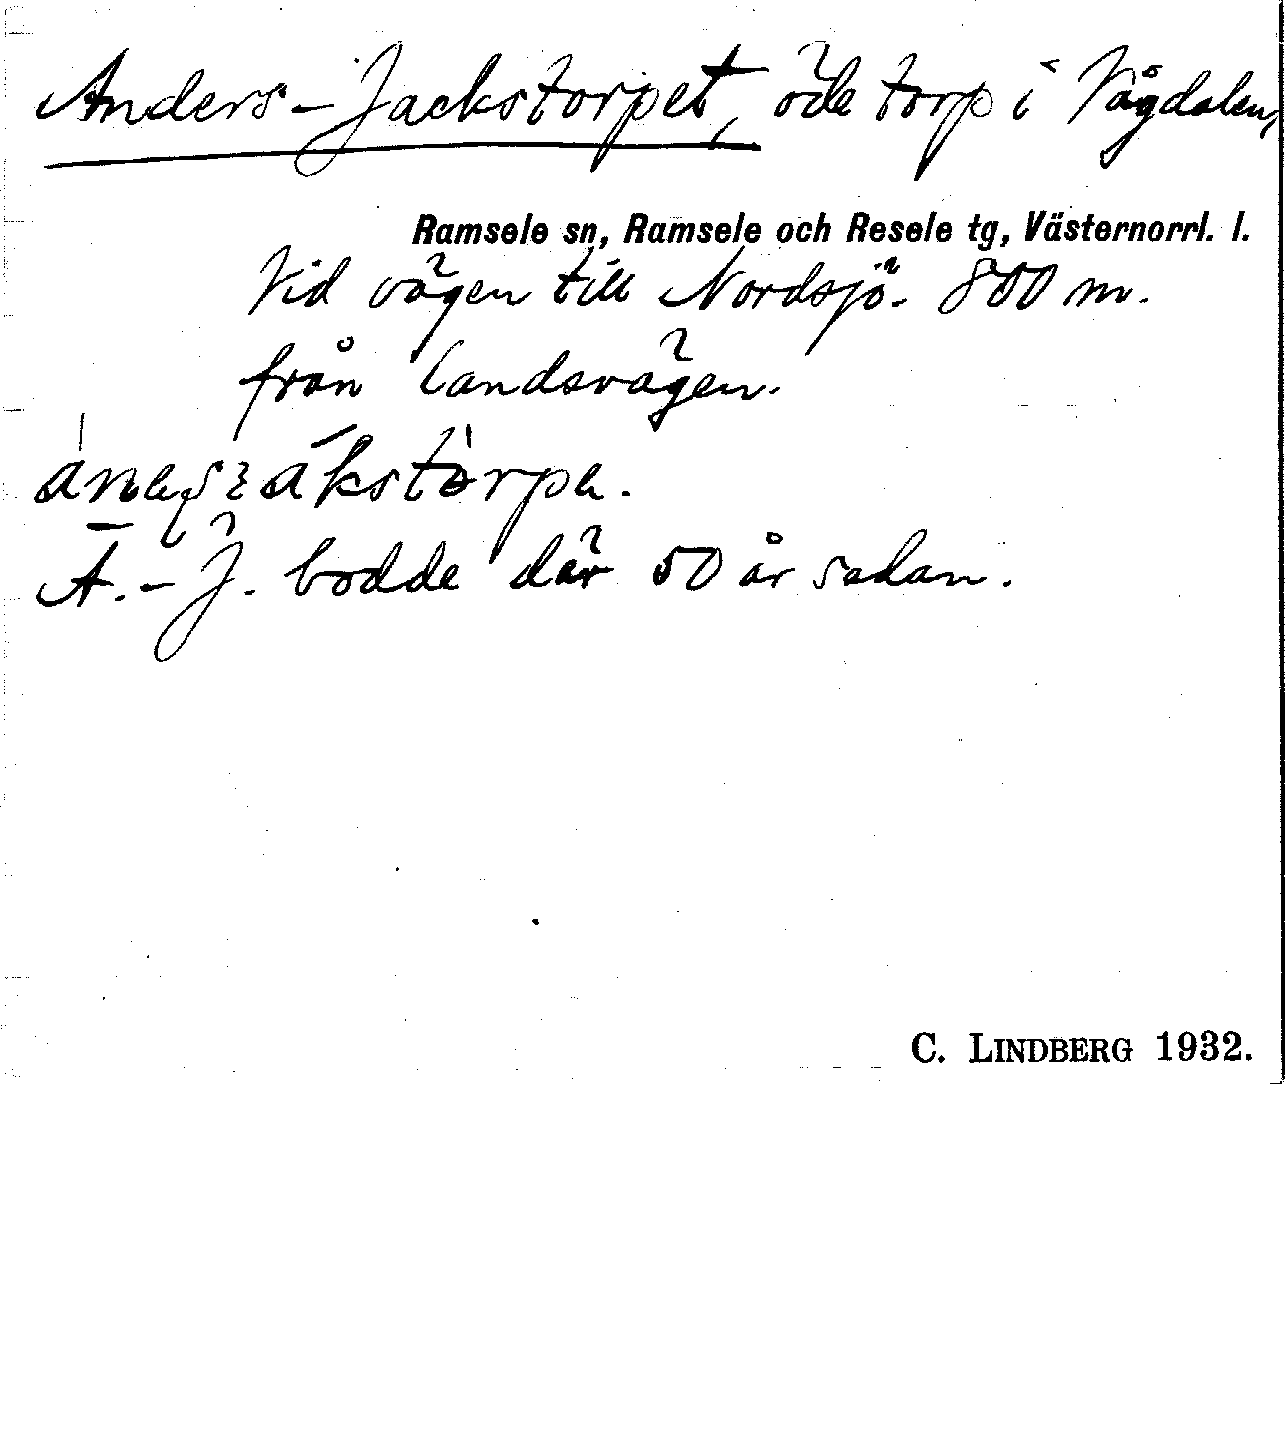 Anders-Jackstorpet, öde torp i Vågdalen,
Ramsele sn, Ramsele och Resele tg, Västernorrl. l.
Vid vägen till Nordsjö. 800 m.
från landsvägen.
A.-J. bodde där 50 år sedan.
C. LINDBERG 1932.